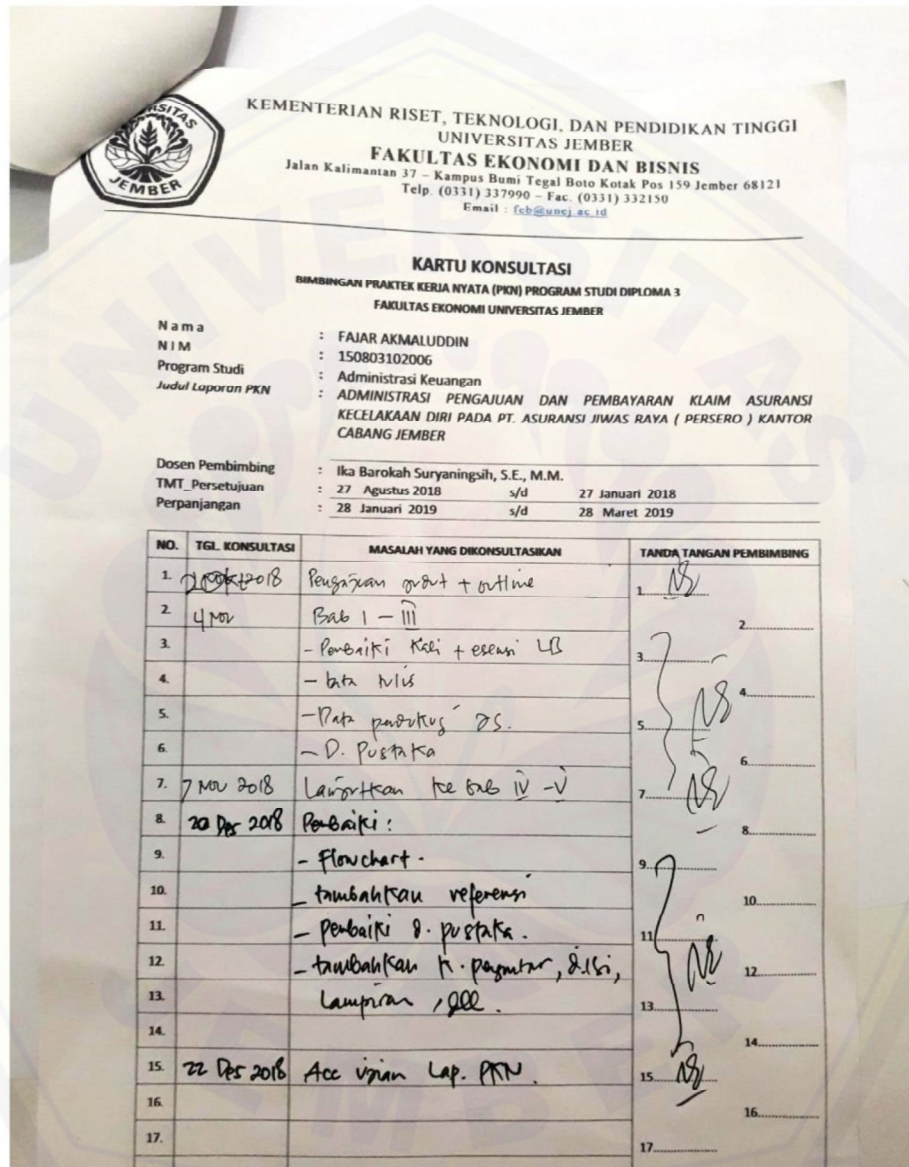 KEMENTERIAN RISET, TEKNOLOGI, DAN PENDIDIKAN TINGGI
UNIVERSITAS JEMBER
FAKULTAS EKONOMI DAN BISNIS
Jalan Kalimantan 37 – Kampus Bumi Tegal Boto Kotak Pos 159 Jember 68121
Telp. (0331) 337990 – Fac. (0331) 332150
Email : feb@unej.ac.id
JEMBER
KARTU KONSULTASI
BIMBINGAN PRAKTEK KERJA NYATA (PKN) PROGRAM STUDI DIPLOMA 3
FAKULTAS EKONOMI UNIVERSITAS JEMBER
Nama : FAJAR AKMALUDDIN
NIM : 150803102006
Program Studi : Administrasi Keuangan
Judul Laporan PKN : ADMINISTRASI PENGAJUAN DAN PEMBAYARAN KLAIM ASURANSI
KECELAKAAN DIRI PADA PT. ASURANSI JIWAS RAYA ( PERSERO ) KANTOR
CABANG JEMBER
Dosen Pembimbing : Ika Barokah Suryaningsih, S.E., M.M.
TMT_Persetujuan : 27 Agustus 2018 s/d 27 Januari 2018
Perpanjangan : 28 Januari 2019 s/d 28 Maret 2019
NO. TGL. KONSULTASI MASALAH YANG DIKONSULTASIKAN TANDA TANGAN PEMBIMBING
1. 2018 Pengajuan + outline 1
2. 4 Nov Bab I – III 2
3. - Perbaiki + esensi LB 3
4. - tata tulis 4
5. - Data 5
6. - D. Pustaka 6
7. 7 Nov 2018 Lanjutkan ke bab IV - V 7
8. 20 Des 2018 Perbaiki : 8
9. - Flowchart . 9
10. - tambahkan referensi 10
11. - Perbaiki d. pustaka . 11
12. - tambahkan k. pengantar, d.isi, 12
13. Lampiran , dll . 13
14. 14
15. 22 Des 2018 Acc ujian Lap. PKN . 15
16. 16
17. 17
UNIVERSITAS
JEMBER